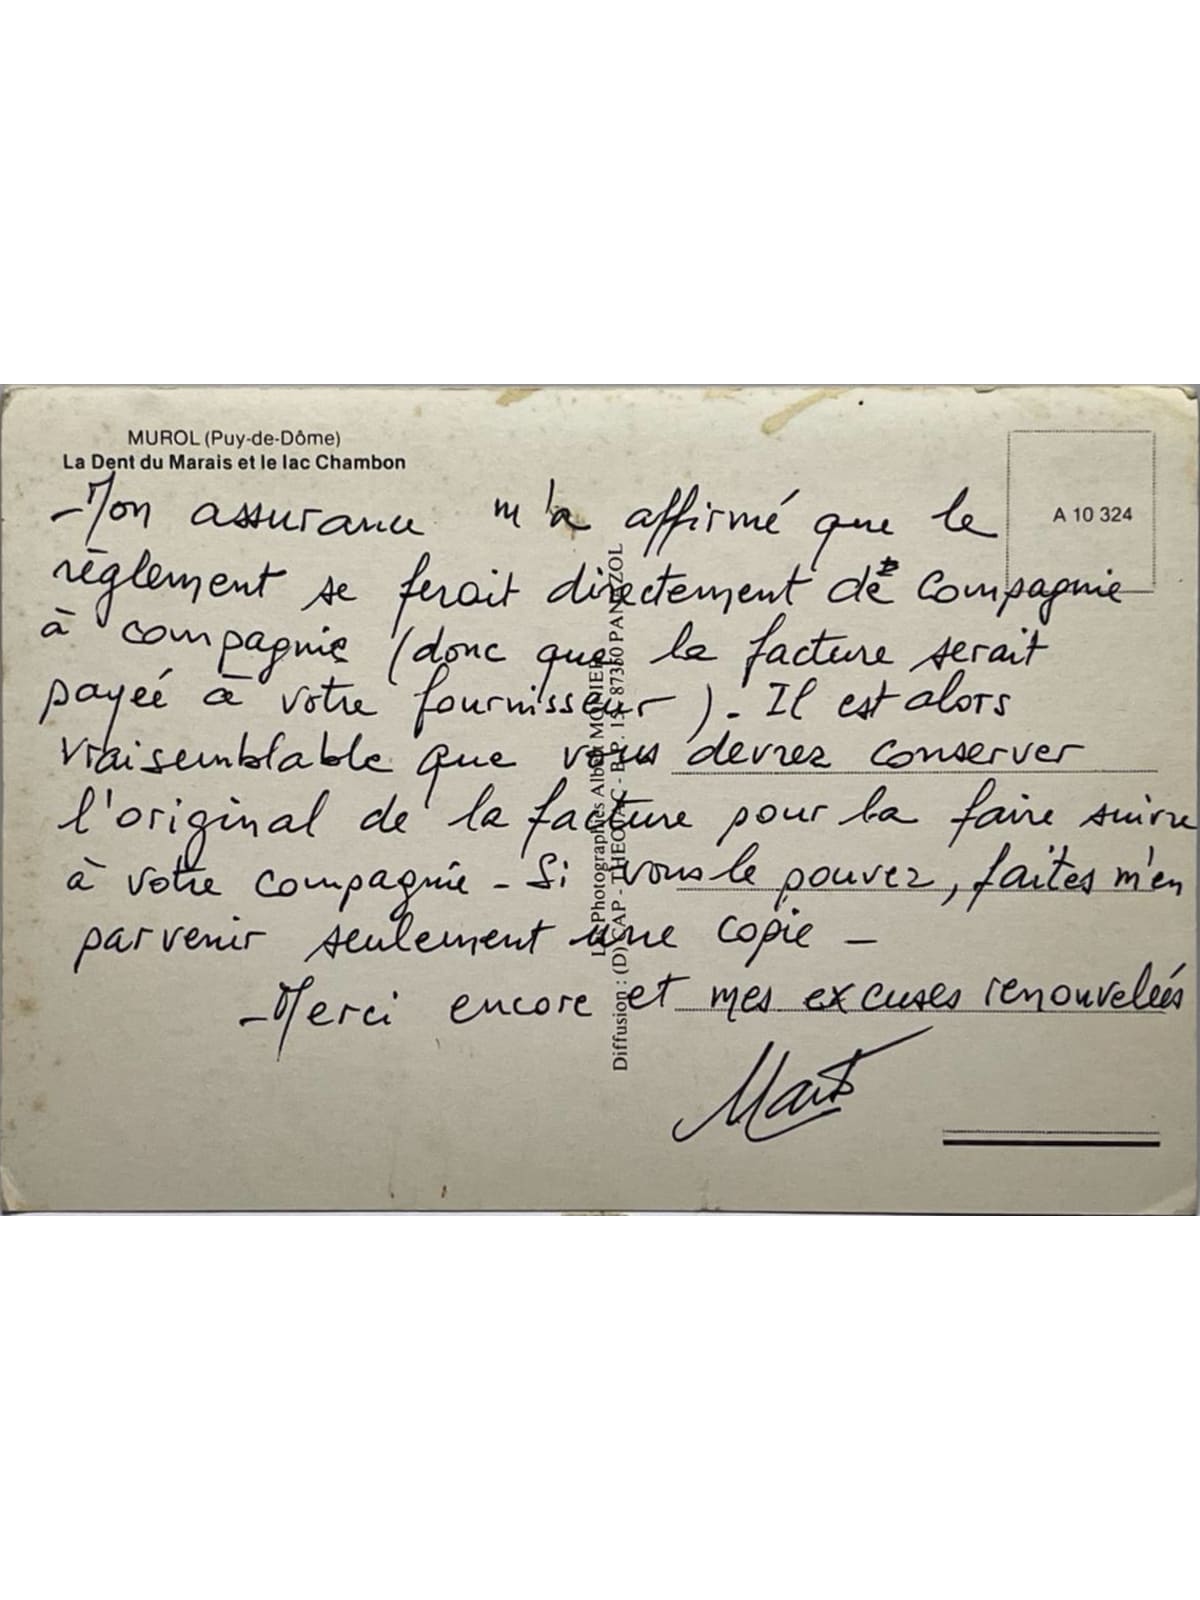 MUROL (Puy-de-Dôme)
La Dent du Marais et le lac Chambon
A 10 324
Mon assurance m'a affirmé que le
règlement se ferait directement de compagnie
à compagnie (donc que la facture serait
payée à votre fournisseur). Il est alors
vraisemblable que vous devrez conserver
l'original de la facture pour la faire suivre
à votre compagnie - Si vous le pouvez, faites m'en
parvenir seulement une copie -
- Merci encore et mes excuses renouvelées
Photographies Albert MONIER
Diffusion : (D) CAP - THEOJAC - B.P. 15 - 87350 PANAZOL